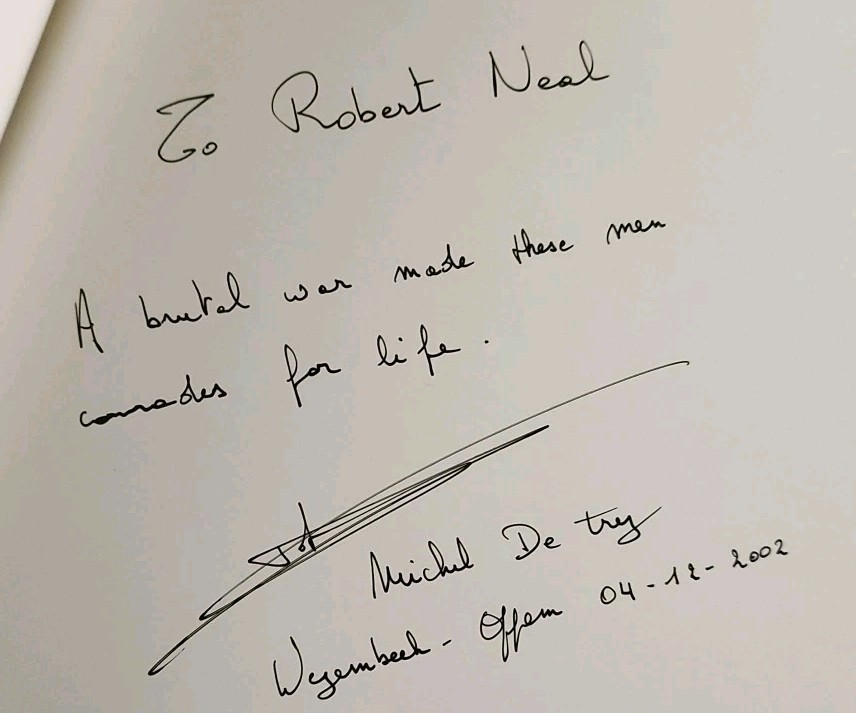 To Robert Neal
A brutal war made these men
comrades for life.
Michel De Trez
Wezembeek - Oppem 04-12-2002